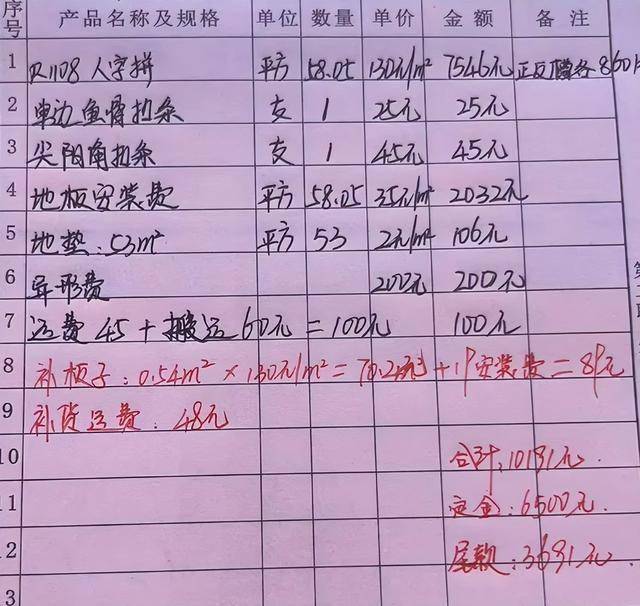 序号 产品名称及规格 单位 数量 单价 金额 备注
1 R1108人字拼 平方 58.05 130元/m² 7546元 正反槽各860
2 单边鱼骨扣条 支 1 25元 25元
3 尖阳角扣条 支 1 45元 45元
4 地板安装费 平方 58.05 35元/m² 2032元
5 地垫:53m² 平方 53 2元/m² 106元
6 异形费 200元 200元
7 运费45+搬运60元=100元 100元
8 补板子:0.54m²×130元/m²=70.2元+19安装费=89元
9 补货运费:48元
10 合计:10191元.
11 定金:6500元.
12 尾款:3691元.
3
第